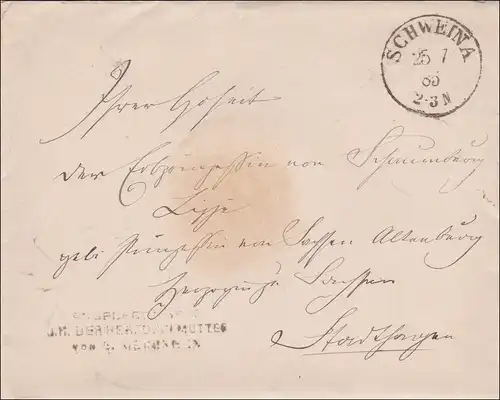 SCHWEINA
25 7
85
2-3 N
Ihrer Hoheit
der Erbprinzessin von Schaumburg
Lippe
geb. Prinzessin von Sachsen Altenburg
Herzogin zu Sachsen
Stadthagen
J.H. DER HERZOGIN MUTTER
VON S. MEININGEN